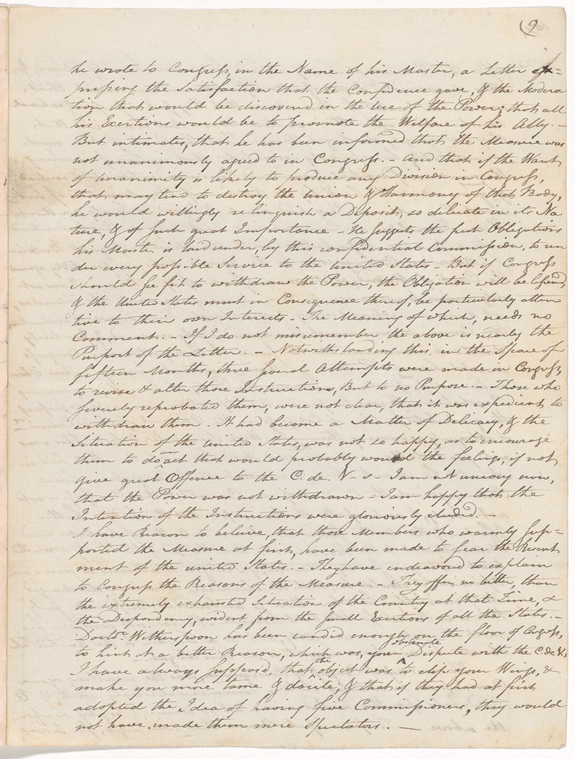 (9
he wrote to Congress, in the Name of his Master, a Letter ex=
pressing the Satisfaction that the Confidence gave, & the Modera
tion that would be discovered in the Use of the Power; that all
his Exertions would be to promote the Welfare of his Ally. –
But intimates, that he has been informed that the Measure was
not unanimously agreed to in Congress. – And that if the Want
of Unanimity is likely to produce any Division in Congress,
that may tend to destroy the Union & Harmony of that Body,
he would willingly relinquish a Deposit, so delicate in its Na
ture, & of such great Importance – He suggests the great Obligations
his Master is laid under, by this confidential Commission, to ren
der every possible Service to the United States – But if Congress
should see fit to withdraw the Power, the Obligation will be lessened
& the United States must in Consequence thereof, be particularly atten
tive to their own Interests – The Meaning of which, needs no
Comment. – If I do not misremember the above is nearly the
Purport of the Letter. – Notwithstanding this, in the Space of
fifteen Months, three several Attempts were made in Congress,
to revise & alter those Instructions, But to no Purpose – Those who
severely reprobated them, were not clear, that it was expedient to
withdraw them. It had become a Matter of Delicacy, & the
Situation of the United States, was not so happy, as to encourage
them to do an act that would probably wound the feelings, if not
give great Offence to the C. de. V–s – I am not uneasy now,
that the Power was not withdrawn – I am happy that the
Intention of the Instructions were gloriously eluded. –
I have Reason to beleive, that those Members who warmly sup=
ported the Measure at first, have been made to fear the Resent
ment of the United States. – They have endeavored to explain
to Congress the Reasons of the Measure. – They offer no better, than
the extremely exhausted Situation of the Country at that Time, &
the Despondency, evident from the small Exertions of all the States. –
Doctr. Witherspoon has been candid enough on the floor of Congress,
to hint at a better Reason, which was, your Dispute with the C. de V.
I have always supposed, that the object was to clip your Wings, &
make you more tame & docile, & that if they had at first
adopted the Idea of having five Commissioners, they would
not have made them mere Spectators. –